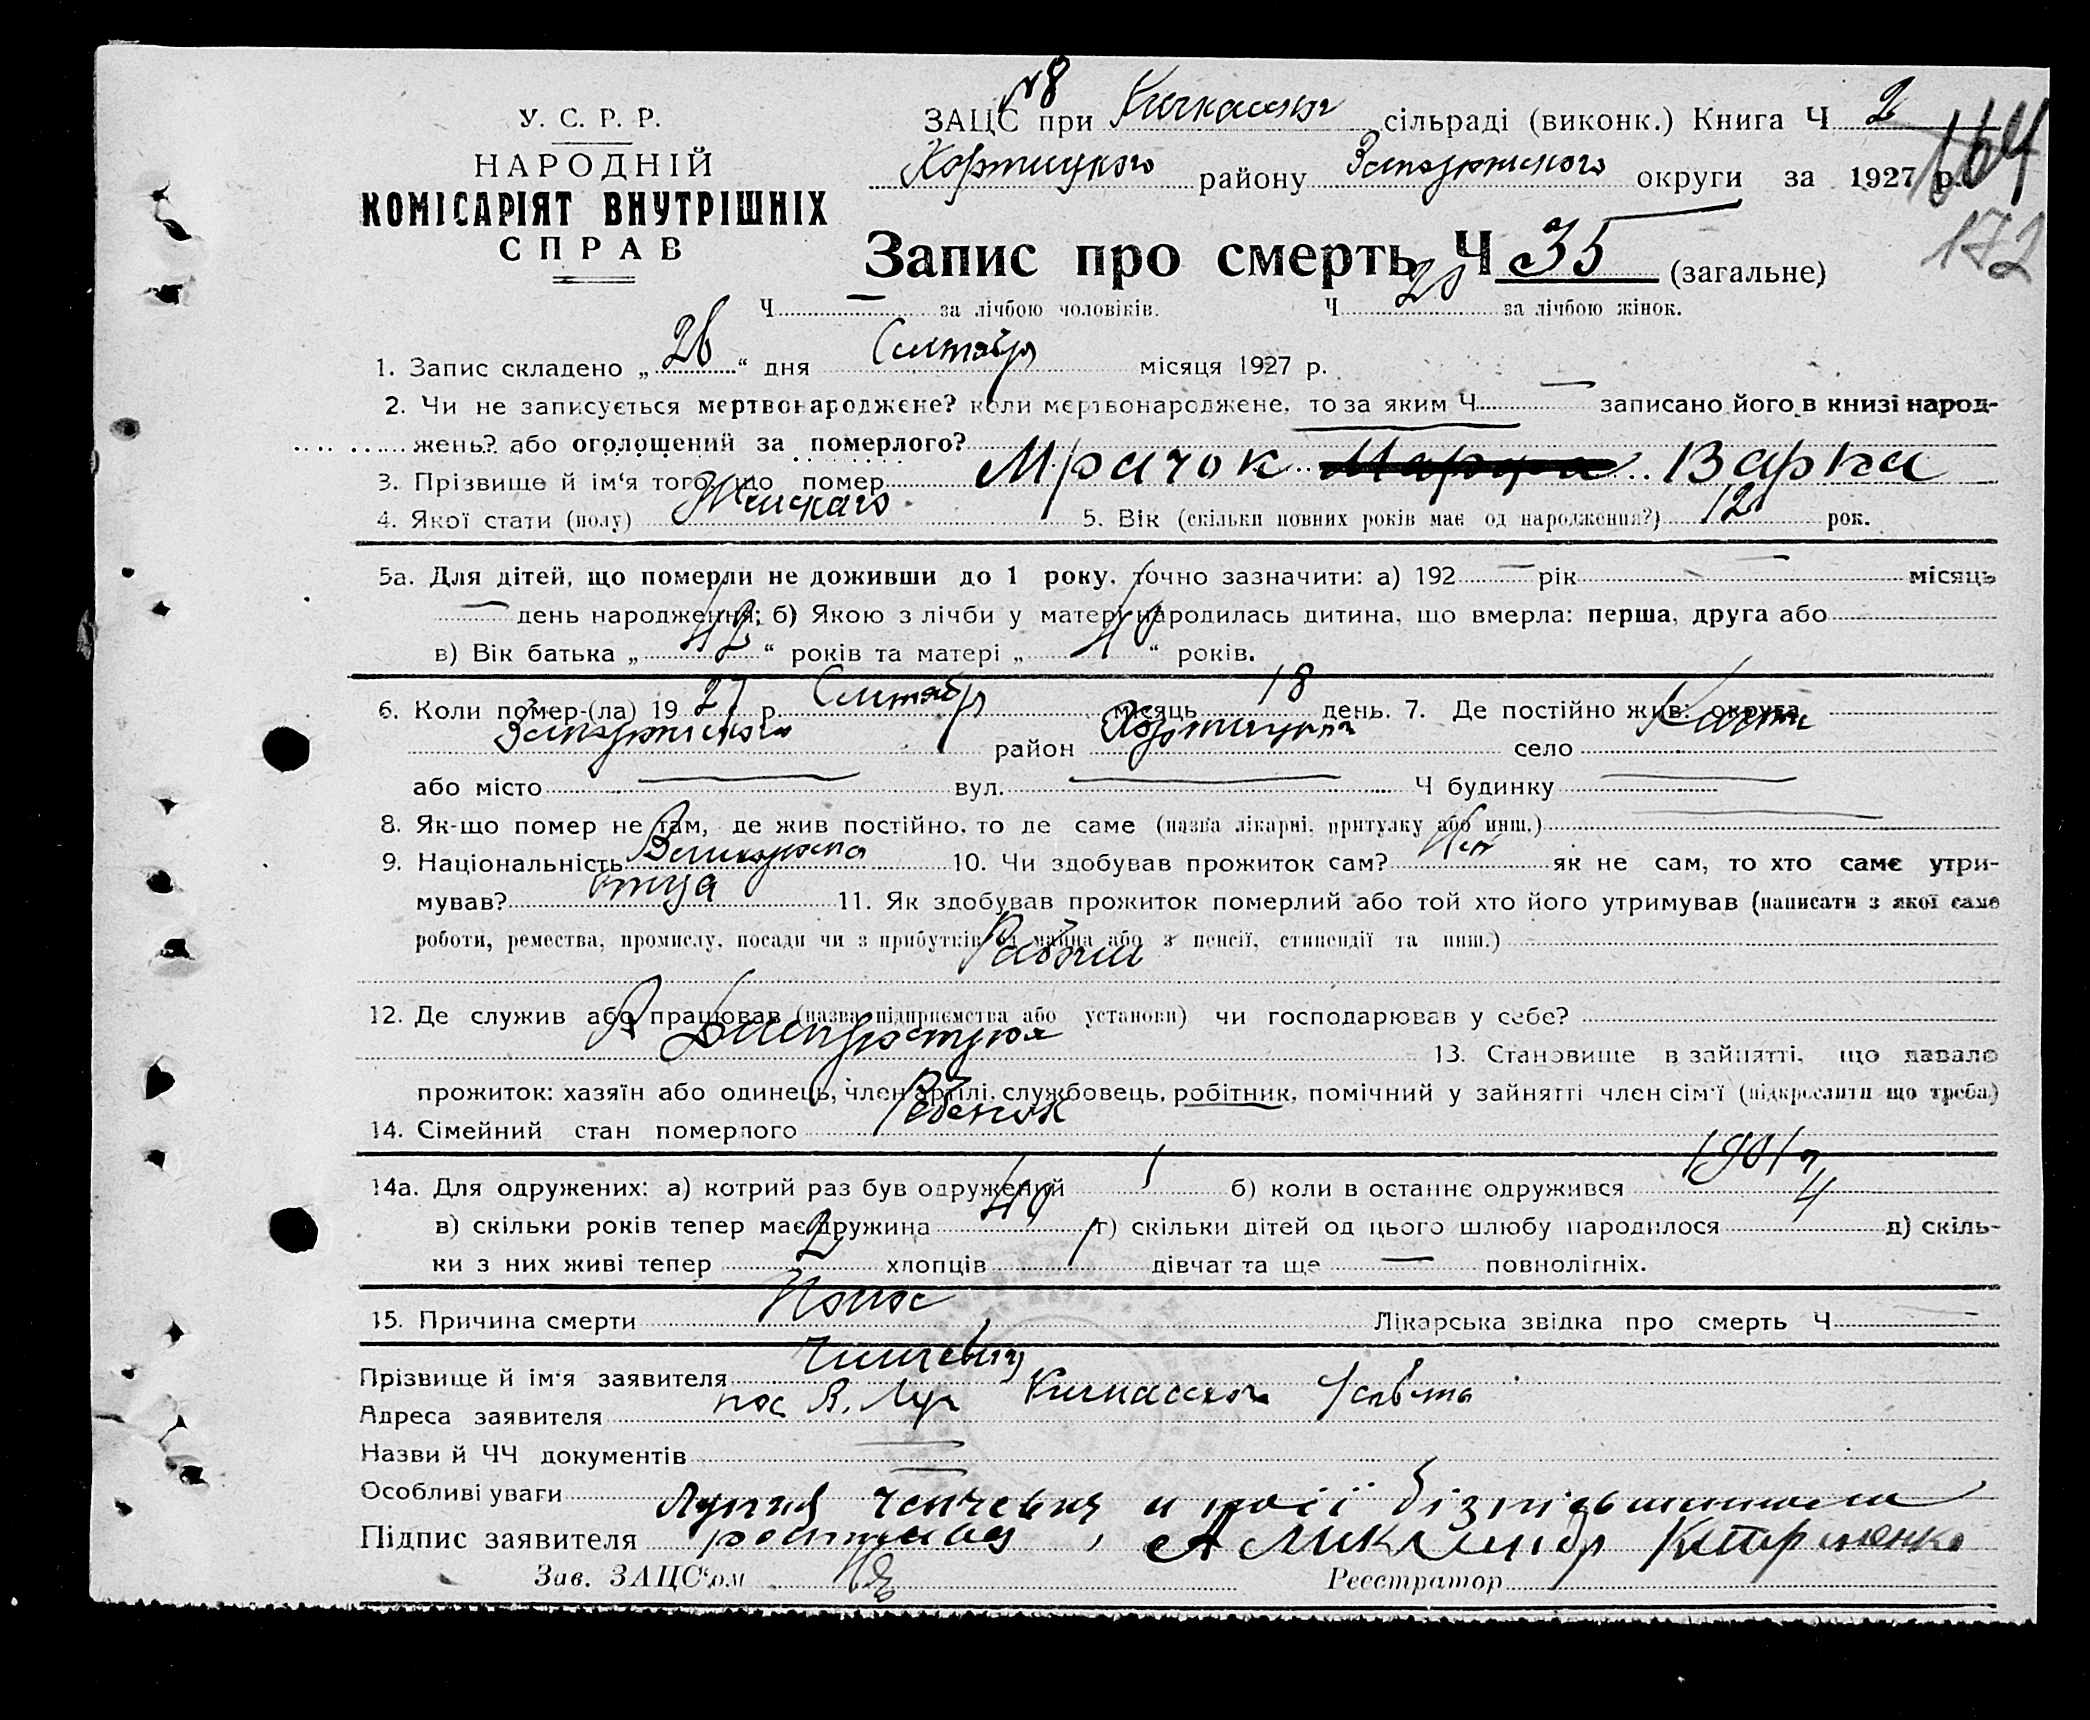 У. С. Р. Р.
НАРОДНІЙ
КОМІСАРІЯТ ВНУТРІШНІХ
СПРАВ
№8
ЗАЦС при сільраді (виконк.) Книга Ч 2
164
Хортицкого району Запорожского округи за 1927 р.
172
Запис про смерть Ч 35 (загальне)
Ч — за лічбою чоловіків. Ч 20 за лічбою жінок.
1. Запис складено „ 26 “ дня Сентября місяця 1927 р.
2. Чи не записується мертвонароджене? коли мертвонароджене, то за яким Ч — записано його в книзі народ-
жень? або оголошений за померлого?
3. Прізвище й ім‘я того, що помер Мрачок Варка
4. Якої стати (полу) Женскаго 5. Вік (скільки повних років має од народження?) 12 рок.
5а. Для дітей, що померли не доживши до 1 року, точно зазначити: а) 192 — рік — місяць
— день народження; б) Якою з лічби у матері народилась дитина, що вмерла: перша, друга або
в) Вік батька „ 42 “ років та матері „ 40 “ років.
6. Коли помер-(ла) 19 27 р. Сентября місяць 18 день. 7. Де постійно жив: округа
Запорожского район Хортицкий село
або місто — вул. — Ч будинку —
8. Як-що помер не там, де жив постійно, то де саме (назва лікарні, притулку або инш.) —
9. Національність 10. Чи здобував прожиток сам? Нет як не сам, то хто саме утри-
мував? отца 11. Як здобував прожиток померлий або той хто його утримував (написати з якої саме
роботи, ремества, промислу, посади чи з прибутків од майна або з пенсії, стипендії та инш.)
Рабочи
12. Де служив або працював (назва підприємства або установи) чи господарював у себе?
Днепростроя 13. Становище в зайнятті, що давало
прожиток: хазяїн або одинець, член артілі, службовець, робітник, помічний у зайнятті член сім‘ї (підкреслити що треба)
14. Сімейний стан померлого Ребенок
14а. Для одружених: а) котрий раз був одружений 1 б) коли в останнє одружився 1901 г
в) скільки років тепер має дружина 40 г) скільки дітей од цього шлюбу народилося 4 д) скіль-
ки з них живі тепер 2 хлопців 1 дівчат та ще — повнолітніх.
15. Причина смерти Понос Лікарська звідка про смерть Ч —
Прізвище й ім‘я заявителя
Адреса заявителя пос В. Луг Кичкасского
Назви й ЧЧ документів —
Особливі уваги —
Підпис заявителя
Зав. ЗАЦС‘ом Реєстратор